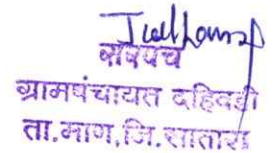 सरपंच
ग्रामपंचायत दहिवडी
ता.माण,जि.सातारा